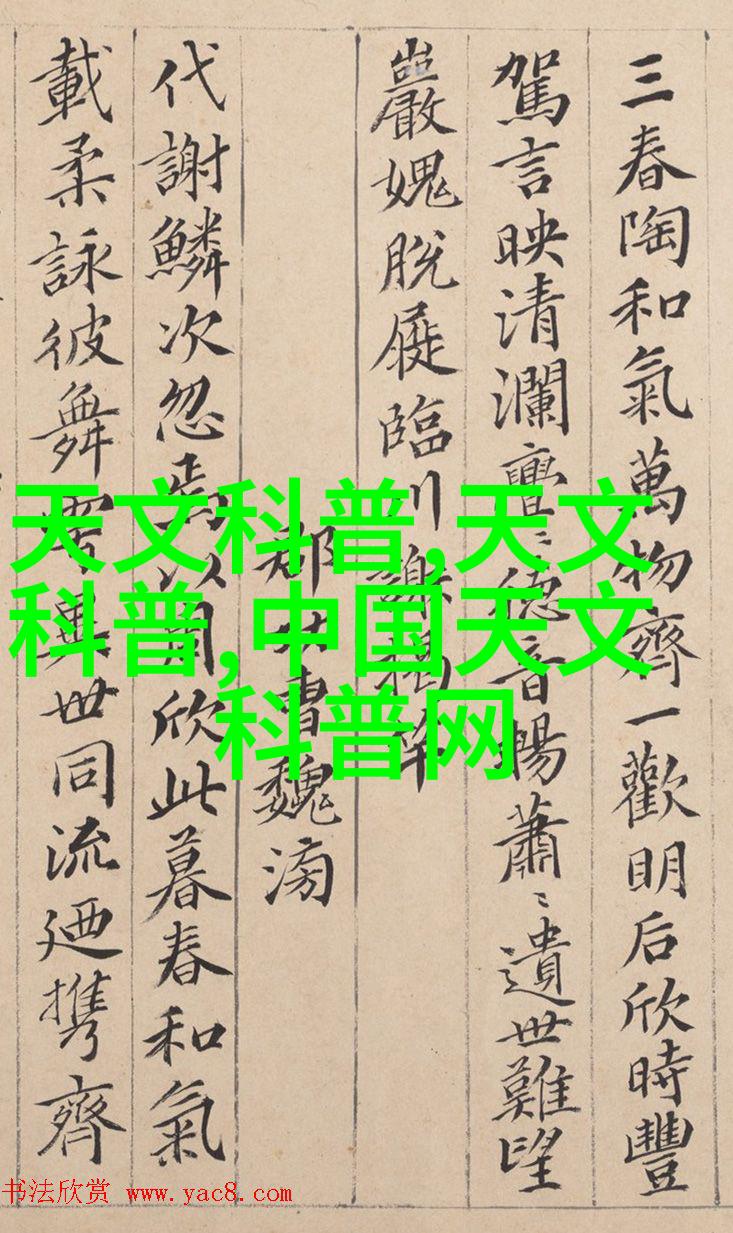 三春陶和氣萬物齊一歡明后欣時豐
駕言映清瀾亹〻德音暢蕭〻遺世難望
巖愧脫屣臨川謝揭竿
郡 曹魏滂
代謝鱗次忽焉以周欣此暮春和氣
載柔詠彼舞雩異世同流迺携齊
天文科普,天文
科普,中国天文
科普网
书法欣赏 www.yac8.com